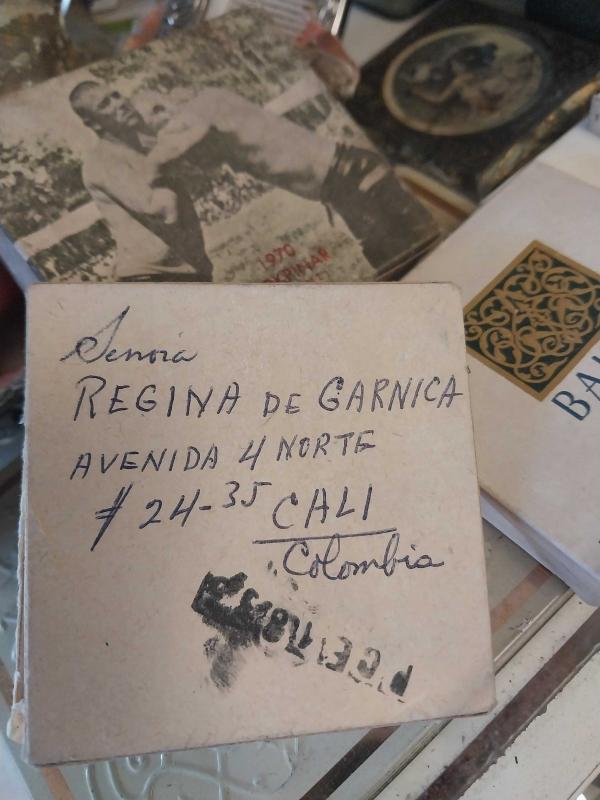 1970
Señora
REGINA DE GARNICA
AVENIDA 4 NORTE
# 24-35 CALI
Colombia